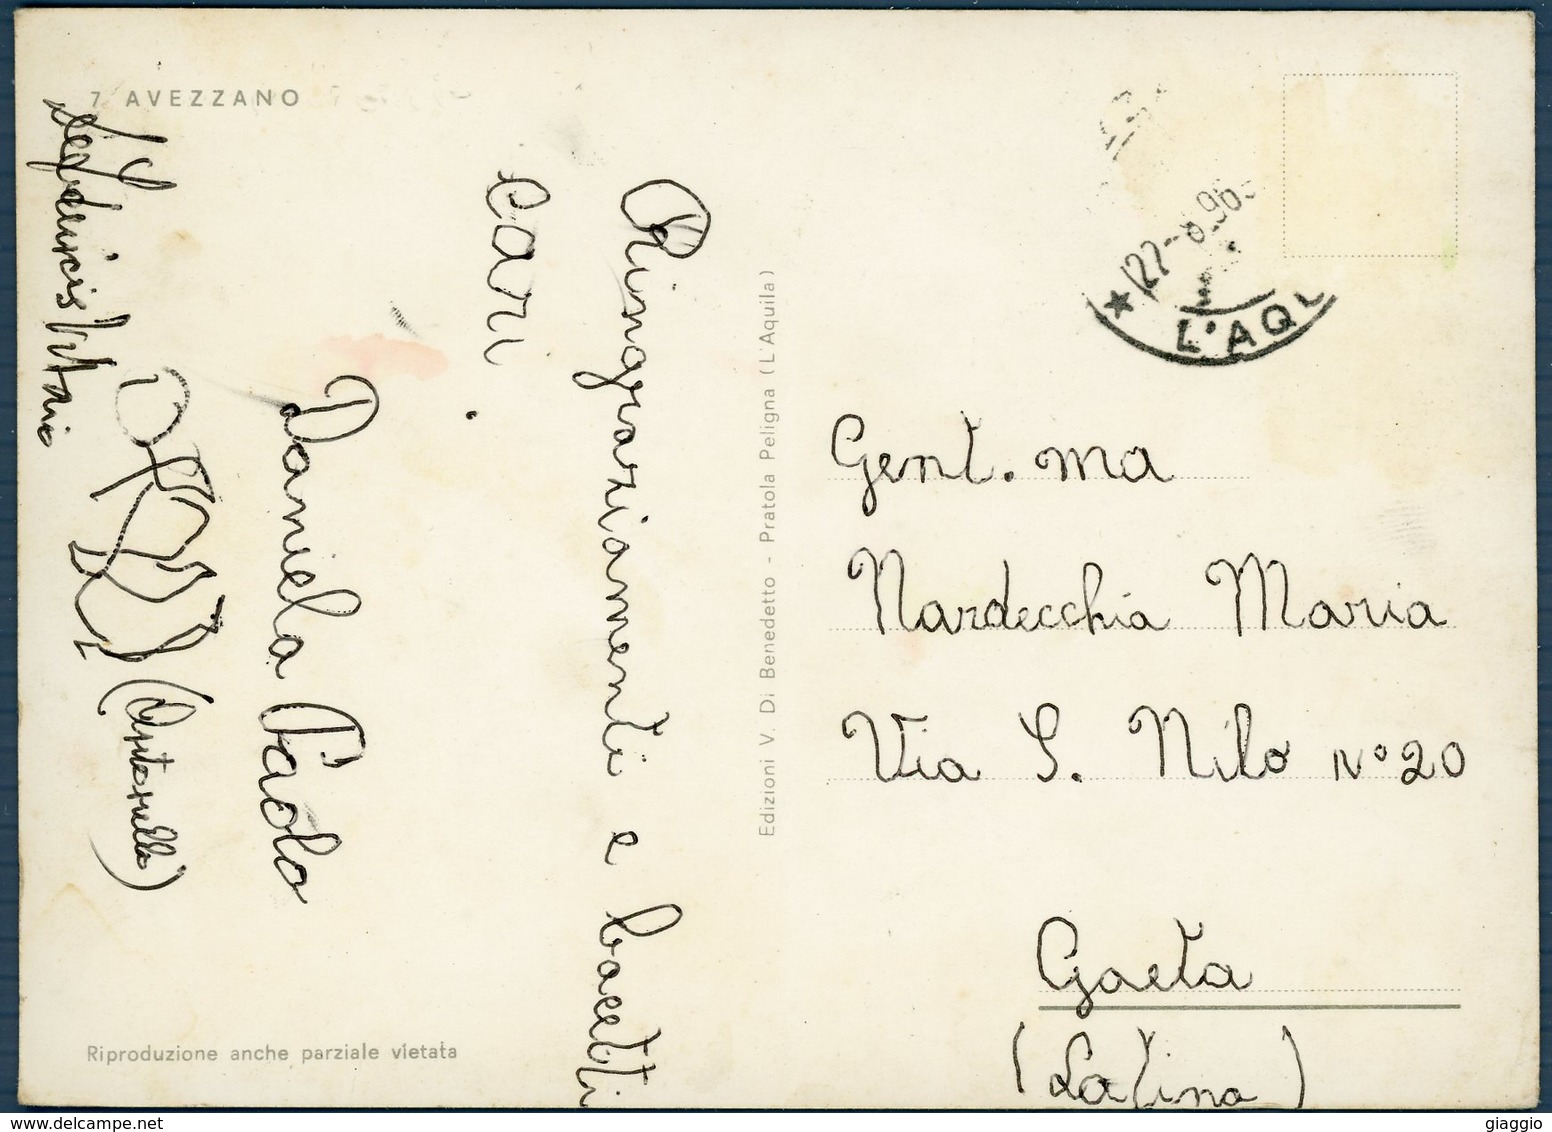 7 AVEZZANO
Ringraziamenti e bacetti
cari.
Daniela Paolo
(Antonella)
Edizioni V. Di Benedetto - Pratola Peligna (L'Aquila)
Riproduzione anche parziale vietata
27-8.96
L'AQ
Gent.ma
Nardecchia Maria
Via S. Nilo N° 20
Gaeta
(Latina)
giaggio